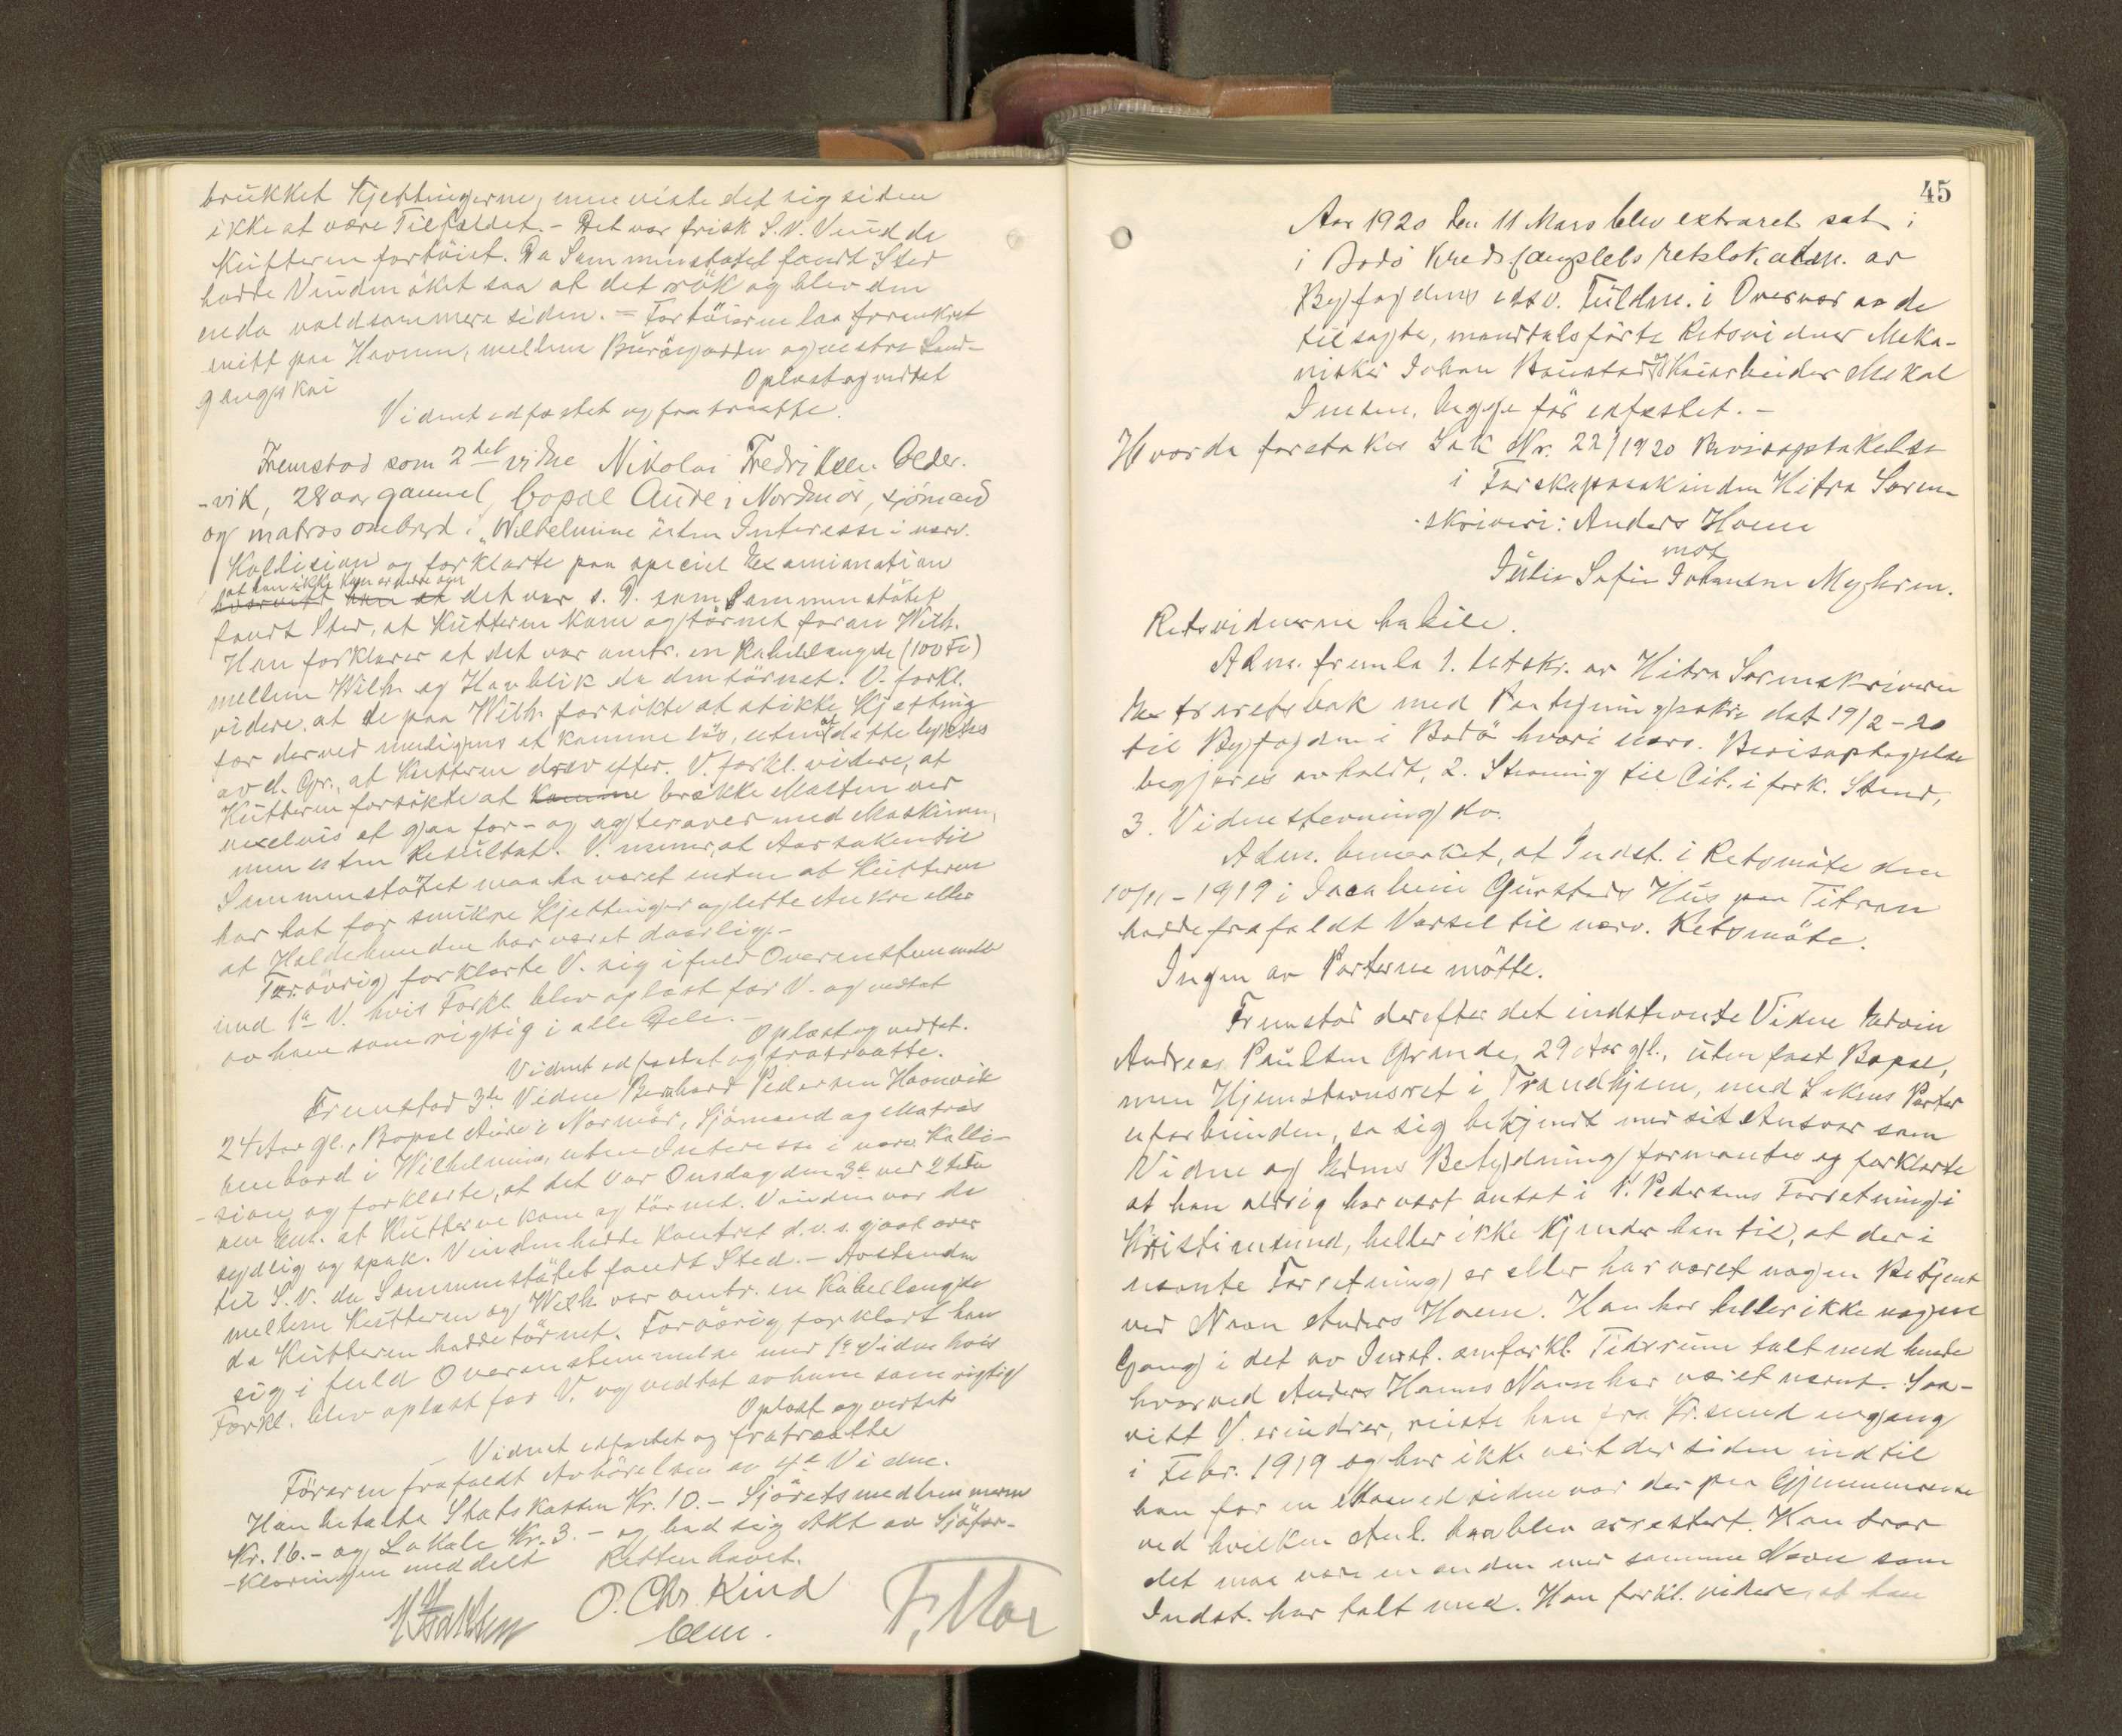 brukket Kjettingerne, men viste det sig siden
ikke at være Tilfældet. - Det var frisk S.V. Vind da
Kutteren fortöiet. Da Sammenstötet fandt Sted
hadde Vinden öket saa at det rök og blev den
enda voldsommere siden. - Fartöierne laa forankret
midt paa Havnen, mellem Buröigarden og vestre Land-
gangskai
Oplæst og vedtat
Vidnet edfæstet og fratraatte.
Fremstod som 2det vidne Nikolai Fredriksen Oeder-
-vik, 28 aar gammel, bopæl Aure i Nordmör, sjömand
og matros ombord i "Wilhelmine uten Interesse i nærv.
Kollision og forklarte paa speciel Examination
at han ikke kan erindre om
hvorvidt han at det var s. D. som Sammenstötet
fandt Sted, at Kutteren kom og törnet foran Wilh.
Han forklarer at det var omtr. en Kabellængde (100 Fv)
mellem Wilh. og Havblik da den törnet. V. forkl.
videre, at de paa Wilh. forsökte at stikke Kjetting
for derved muligens at komme lös, uten at dette lyktes
av d. Gr., at Kutteren drev efter. V. forkl. videre, at
Kutteren forsökte at komme brække Masten ved
vexelvis at gaa for- og agterover med Maskinen,
men uten Resultat. V. mener, at Aarsaken til
Sammenstötet maa ha været enten at Kutteren
har hat for smukre Kjettinger og lette Ankre eller
at Holdebunden har været daarlig. -
Forövrig forklarte V. sig i fuld Overenstemmelse
med 1ste V. hvis Forkl. blev oplæst for V. og vedtat
av ham som rigtig i alle Dele. -
Oplæst og vedtat.
Vidnet edfæstet og fratraatte.
Fremstod 3de Vidne Bernhard Pedersen Haanvik
24 Aar gl., Bopæl Aure i Normör, Sjömand og Matros
ombord i Wilhelmine, uten Interesse i nærv. Kolli-
-sion og forklarte, at det var Onsdag den 3de ved 2 Tiden
at Kutterne kom og törnet. Vinden var da
sydlig og spak. Vinden hadde kantret d.v.s. gaat over
til S.V. da Sammenstötet fandt Sted. - Avstanden
mellem Kutteren og Wilh. var omtr. en Kabellængde
da Kutteren hadde törnet. Forövrig forklart han
sig i fuld Overenstemmelse med 1ste Vidne hvis
Forkl. blev oplæst for V. og vedtat av ham som rigtig
Oplæst og vedtat
Vidnet edfæstet og fratraatte
Föreren frafaldt Avhörelsen av 4de Vidne.
Han betalte Statskassen Kr. 10. - Sjöretsmedlemmerne
Kr. 16. - og Lokale Kr. 3. - og bad sig Akt av Sjöfor-
-klaringen meddelt Retten hævet.
O. Chr. Kind
45
Aar 1920 den 11 Mars blev extraret sat i
i Bodö Kredsfængslets retslokale av
Byfogdens edsv. Fuldm. i Overvær av de
tilsagte, mandtalsförte Retsvidner Meka-
niker Johan Baustad og Kaiarbeider Mekal
Jensen, begge för edfæstet. -
Hvorda foretakes Sak Nr. 22/1920 Bevisoptakelse
i Farskapssak inden Hitra Soren-
skriveri: Anders Hoem
mot
Julie Sofie Johansen Myhren.
Retsvidnerne habile.
Adm. fremla 1. Utskr. av Hitra Sorenskriveri
Extraretsbok med Paategningsskr. dat 19/2-20
til Byfogden i Bodö hvori nærv. Bevisoptagelse
begjæres avholdt, 2. Stevning til Cit. i fork. Stand,
3. Vidnestevning do.
Adm. bemerket, at Indst. i Retsmöte den
10/11-1919 i Jacobine Gurstads Hus paa Titran
hadde frafaldt Varsel til nærv. Retsmöte.
Ingen av Parterne mötte.
Fremstod derefter det indstevnte Vidne Edvin
Andreas Paulsen Grande, 29 Aar gl., uten fast Bopæl,
men Hjemstavnsret i Trondhjem, med Sakens Parter
uforbunden, sa sig bekjendt med sit Ansvar som
Vidne og Edens Betydning formantes og forklarte
at han aldrig har vært ansat i V. Pedersens Forretning i
Kristiansund, heller ikke kjender han til, at der i
nævnte Forretning er eller har været nogen Betjent
ved Navn Anders Hoem. Han har heller ikke nogen
Gang i det av Indst. omforkl. Tidsrum talt med hende
hvorved Anders Hoems Navn har været nævnt. Saa-
vitt V. erindrer, reiste han fra Kr.sund engang
i Febr. 1919 og har ikke vært der siden indtil
han for en Maaned siden var der paa Gjennemreise
ved hvilken Anl. han blev arrestert. Han tror
det maa være en anden med samme Navn som
Indst. har talt med. Han forkl. videre, at han